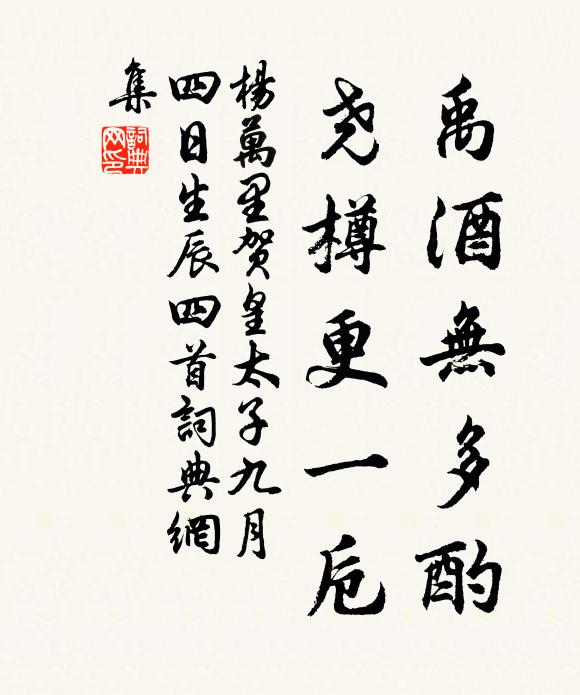 禹酒無多酌
尧樽更一卮
楊萬里贺皇太子九月
四日生辰四首詞典網
集
詞典
网印